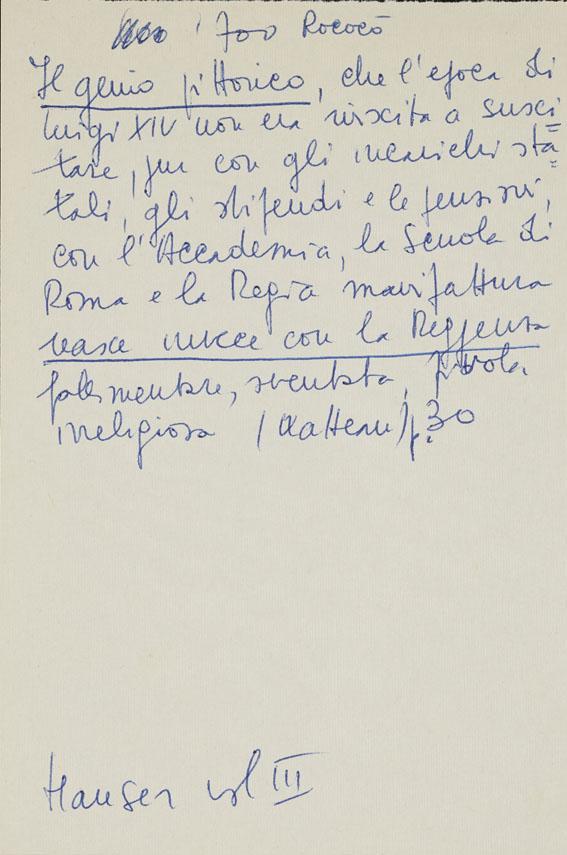 '700 Rococò
Il genio pittorico, che l'epoca di
Luigi XIV non era riuscita a susci
tare, pur con gli incarichi sta
tali, gli stipendi e le pensioni,
con l'Accademia, la Scuola di
Roma e la Regia manifattura
nasce invece con la Reggenza
fallimentare, sventata, frivola
irreligiosa (Watteau) p. 30
Hauser vol III